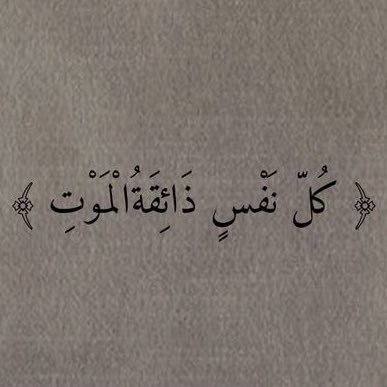 ﴿ كُلّ نَفْسٍ ذَائِقَةُالْمَوْتِ ﴾